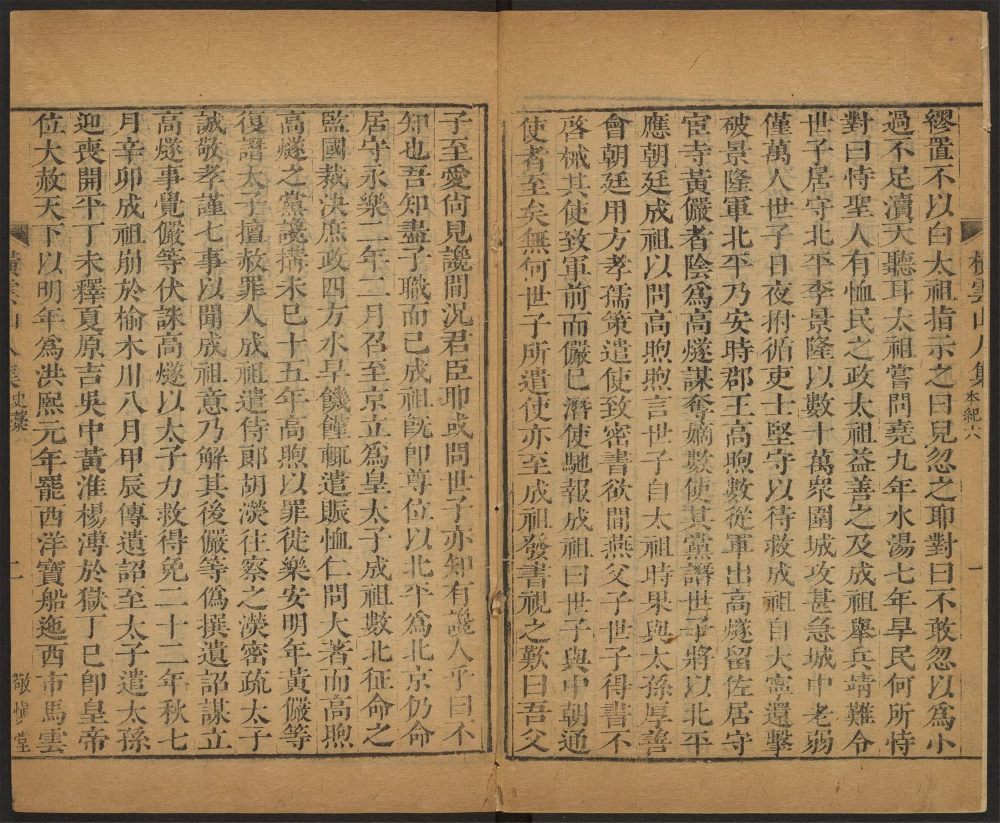 橫雲山人集 本紀六 一
繆置不以白太祖指示之曰兒忽之耶對曰不敢忽以爲小
過不足瀆天聽耳太祖嘗問堯九年水湯七年旱民何所恃
對曰恃聖人有恤民之政太祖益善之及成祖舉兵靖難令
世子居守北平李景隆以數十萬衆圍城攻甚急城中老弱
僅萬人世子日夜拊循吏士堅守以待救成祖自大寧還擊
破景隆軍北平乃安時郡王高煦數從軍出高燧留佐居守
宦寺黃儼者陰爲高燧謀奪嫡數使其黨譖世子將以北平
應朝廷成祖以問高煦煦言世子自太祖時果與太孫厚善
會朝廷用方孝孺策遣使致密書欲間燕父子世子得書不
啓械其使致軍前而儼已潛使馳報成祖曰世子與中朝通
使者至矣無何世子所遣使亦至成祖發書視之歎曰吾父
子至愛尙見讒間况君臣耶或問世子亦知有讒人乎曰不
知也吾知盡子職而已成祖旣卽尊位以北平爲北京仍命
居守永樂二年二月召至京立爲皇太子成祖數北征命之
監國裁決庶政四方水旱饑饉輒遣賑恤仁問大著而高煦
高燧之黨讒搆未已十五年高煦以罪徙樂安明年黃儼等
復譖太子擅赦罪人成祖遣侍郞胡濙往察之濙密疏太子
誠敬孝謹七事以聞成祖意乃解其後儼等僞撰遺詔謀立
高燧事覺儼等伏誅高燧以太子力救得免二十二年秋七
月辛卯成祖崩於榆木川八月甲辰傳遺詔至太子遣太孫
迎喪開平丁未釋夏原吉吳中黃淮楊溥於獄丁巳卽皇帝
位大赦天下以明年爲洪熙元年罷西洋寶船迤西市馬雲
橫雲山人集 史藁 二 敬愼堂